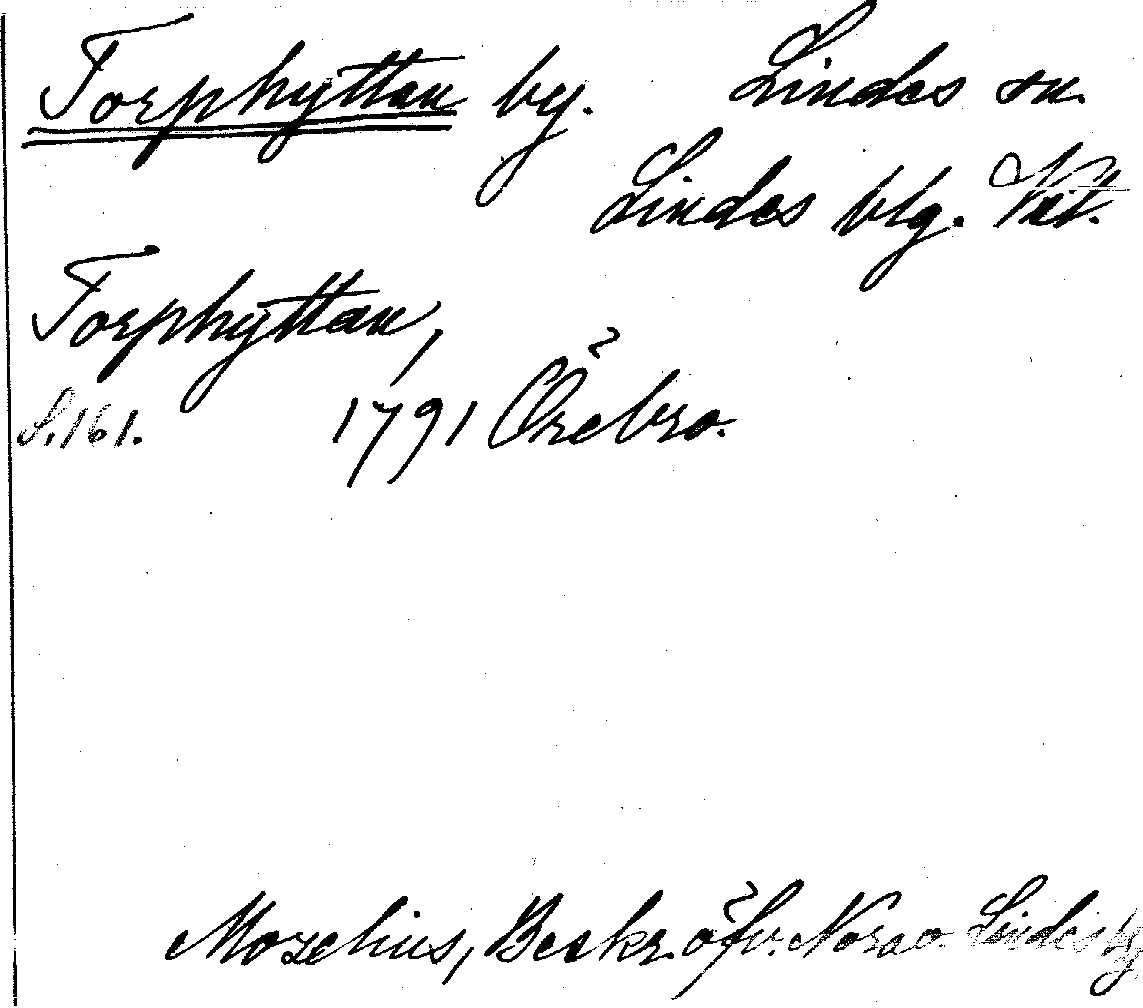 Torphyttan by. Lindes sn.
Lindes blg. Vstm.
Torphyttan,
S. 161. 1791 Örebro.
Mozelius, Beskr. öfv. Nora o. Lindes bg